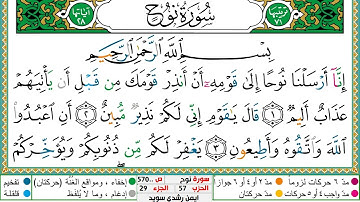 سُورَةُ نُوحٍ
ترتيبها ٧١
آياتها ٢٨
بِسْمِ ٱللَّهِ ٱلرَّحْمَٰنِ ٱلرَّحِيمِ
إِنَّآ أَرْسَلْنَا نُوحًا إِلَىٰ قَوْمِهِۦٓ أَنْ أَنذِرْ قَوْمَكَ مِن قَبْلِ أَن يَأْتِيَهُمْ
عَذَابٌ أَلِيمٌ ١ قَالَ يَٰقَوْمِ إِنِّي لَكُمْ نَذِيرٌ مُّبِينٌ ٢ أَنِ ٱعْبُدُوا۟
ٱللَّهَ وَٱتَّقُوهُ وَأَطِيعُونِ ٣ يَغْفِرْ لَكُم مِّن ذُنُوبِكُمْ وَيُؤَخِّرْكُمْ
مد ٦ حركات لزوماً مد ٢ أو ٤ أو ٦ جوازاً سورة نوح ص ..570 إخفاء، ومواقع الغُنَّة (حركتان) تفخيم
مد واجب ٤ أو ٥ حركات مد حركتان الحزب 57 الجزء 29 إدغام، وما لا يُلفَظ قلقلة
أيمن رشدي سويد